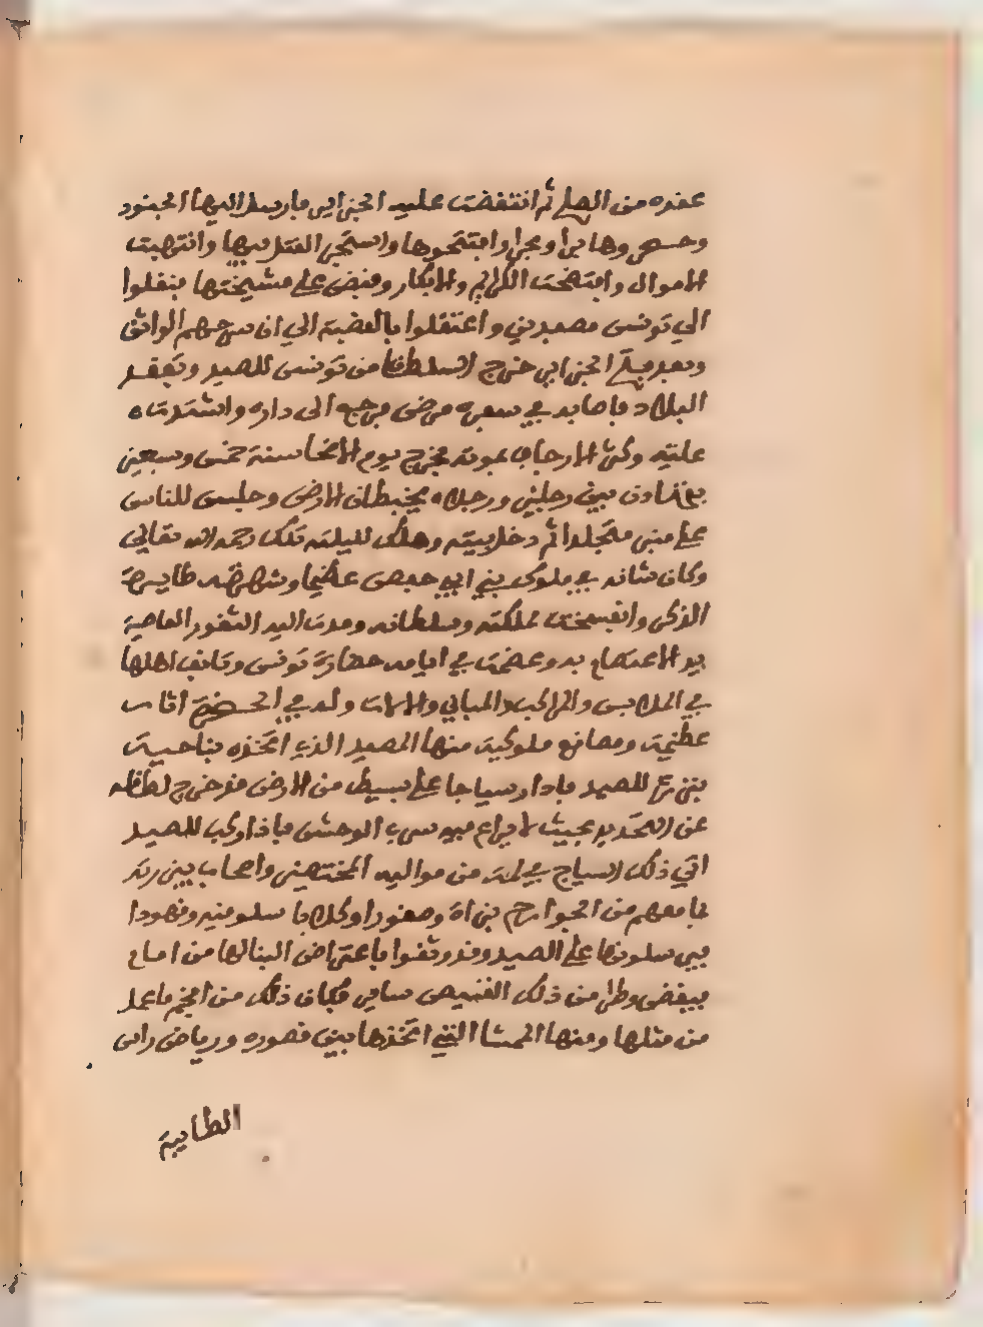 عقده من الصلح ثم انتقضت عليه الجزائر فارسل اليها الجنود
وحصروها برا وبحرا وافتتحوها واستحر القتل فيها وانتهبت
الاموال وافتضت الابكار وقبض على مشيختها فنقلوا
الى تونس مصفدين واعتقلوا بالقصبة الى ان سرحهم الواثق
وبعد فتح الجزائر خرج السلطان من تونس للصيد وتفقد
البلاد فاصابه في سفره مرض فرجع الى داره واشتدت
علته وكثر الارجاف بموته فخرج يوم الاضحا سنة خمس وسبعين
يتهادى بين رجلين ورجلاه يخطان الارض وجلس للناس
على منبر متجلدا ثم دخل بيته وهلك لليلته تلك رحمه الله تعالى
وكان شانه في ملوك بني ابي حفص عظيما وشهرته طايرة
الذكر وانفسحت مملكته وسلطانه ومدت اليه الثغور القاصية
يد الاعتصام به وعظمت في ايامه حضارة تونس وتانف اهلها
في الملابس والمراكب والمباني والالات وله في الحضرة اثار
عظيمة ومصانع ملوكية منها المصيد الذي اتخذه بناحية
بنزرت للصيد فادار سياجا على بسيط من الارض قد خرج نطاقه
عن التحديد بحيث لا يراع فيه سرب الوحش فاذا ركب للصيد
اتى ذلك السياج في من مواليه المختصين واصحاب بيزرته
بما معهم من الجوارح بزاة وصقورا وكلابا سلوقية وفهودا
فيرسلونها على الصيد وقد وثقوا باعتراض البنا لها من امام
فيقضي وطرا من ذلك القنيص ساير فكان ذلك من افخم ما عمل
من مثلها ومنها الممشا التي اتخذها بين قصوره ورياض راس
الطابية